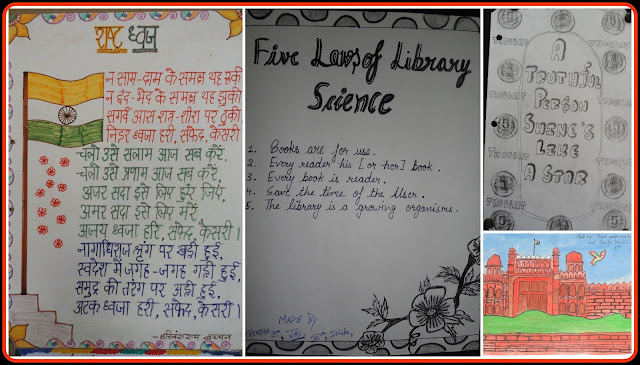 राष्ट्र ध्वज
न साम-दाम के समक्ष यह रुकी
न द्वंद-भेद के समक्ष यह झुकी
सगर्व आस शत्रु-शीश पर ठुकी
निडर ध्वजा हरी, सफेद, केसरी
चलो उसे सलाम आज सब करें,
चलो उसे प्रणाम आज सब करें,
अजर सदा इसे लिए हुए जिएं,
अमर सदा इसे लिए मरें
अजय ध्वजा हरि, सफेद, केसरी।
नागाधिराज श्रृंग पर खड़ी हुई,
स्वदेश में जगह-जगह गड़ी हुई,
समुद्र की तरंग पर अड़ी हुई,
अटक ध्वजा हरी, सफेद, केसरी।
-हरिवंशराय बच्चन
Five Laws of Library
Science
1. Books are for use.
2. Every reader his [or her] book.
3. Every book is reader.
4. Save the time of the User.
5. The library is a growing organisms.
MADE BY
THOUGHT
THOUGHT
THOUGHT
THOUGHT
A
TRUTHFUL
PERSON
SHINE'S
LIKE
A STAR
Made by: